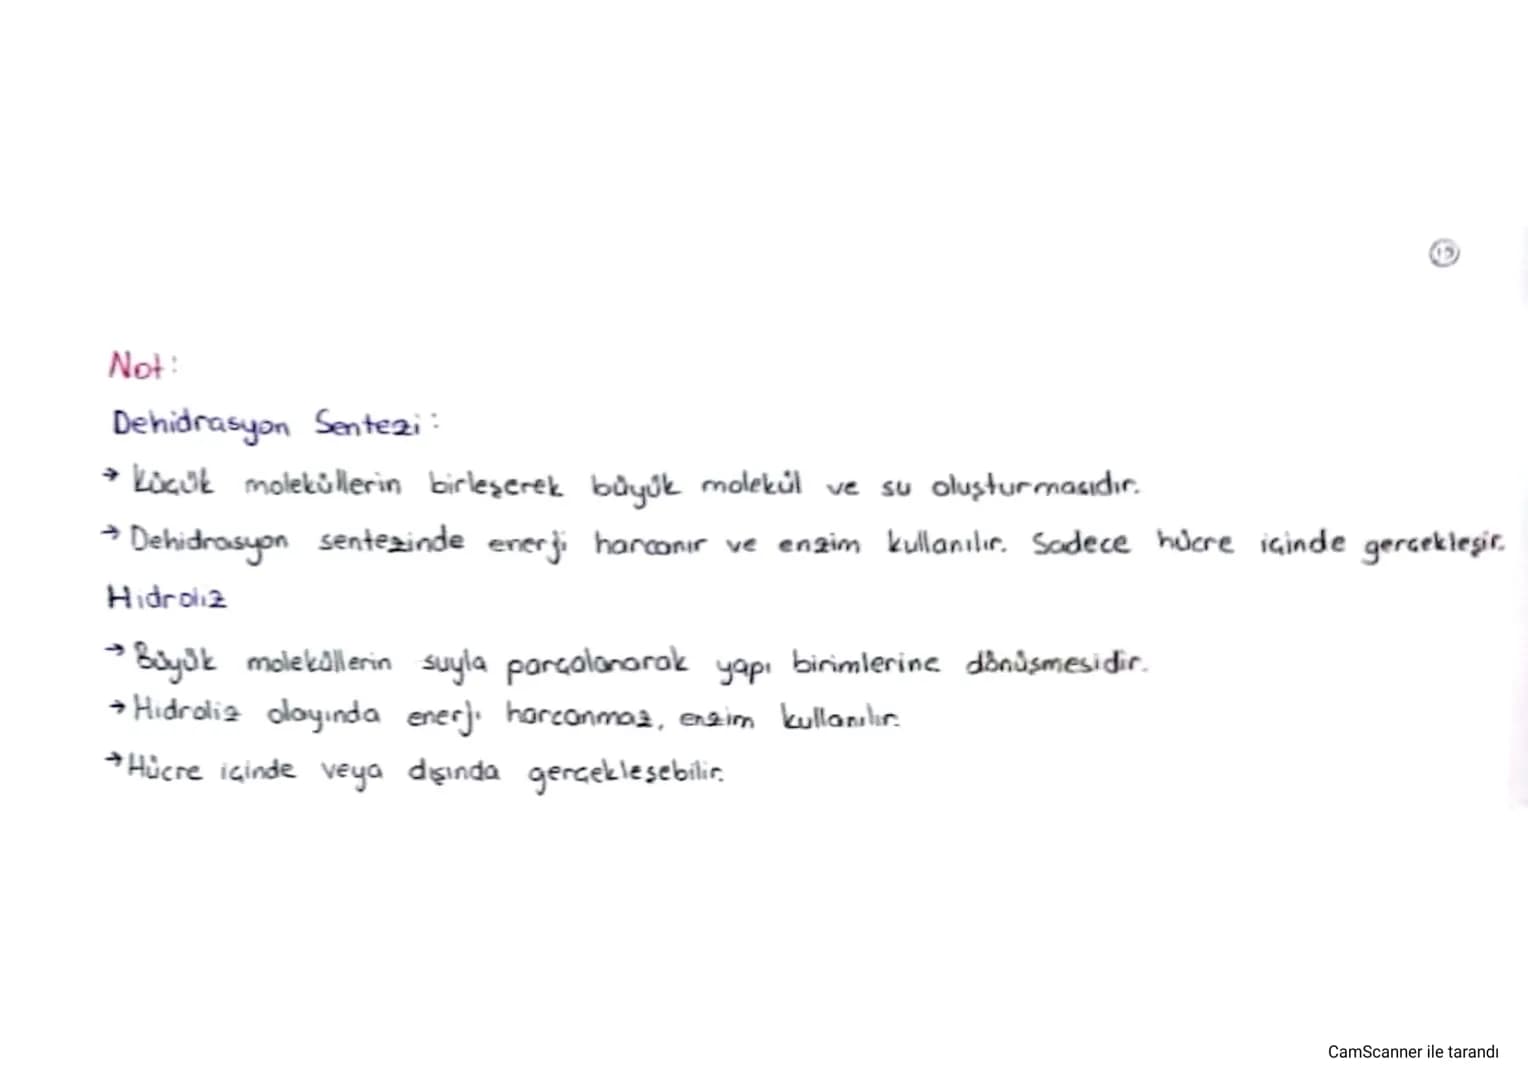 Not:
Dehidrasyon Sentezi:
→ Küçük moleküllerin birleşerek büyük molekül ve su oluşturmasıdır.
→ Dehidrasyon sentezinde enerji harcanır ve enzim kullanılır. Sadece hücre içinde gerçekleşir.
Hidroliz
→ Büyük moleküllerin suyla parçalanarak yapı birimlerine dönüşmesidir.
→ Hidroliz olayında enerji harcanmaz, enzim kullanılır.
→ Hücre içinde veya dışında gerçekleşebilir.
CamScanner ile tarandı